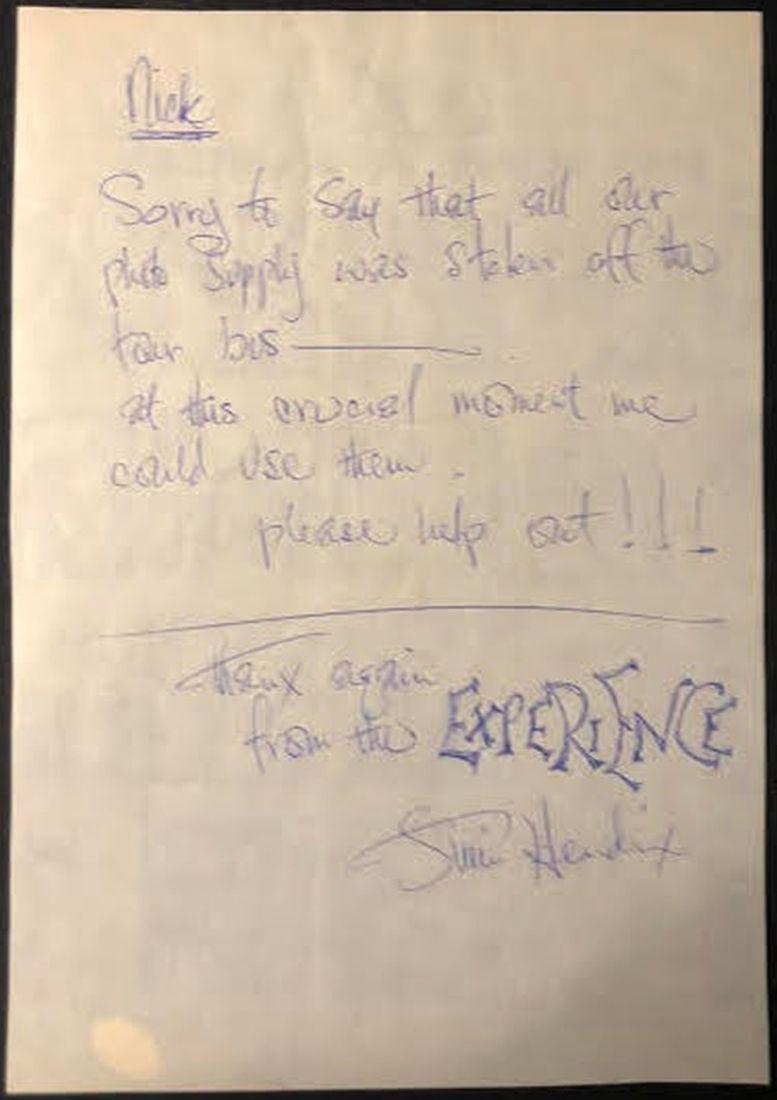 Nick
Sorry to say that all our
photo supply was stolen off the
tour bus
at this crucial moment we
could use them.
please help out!!!
thanx again
from the EXPERIENCE
Jimi Hendrix